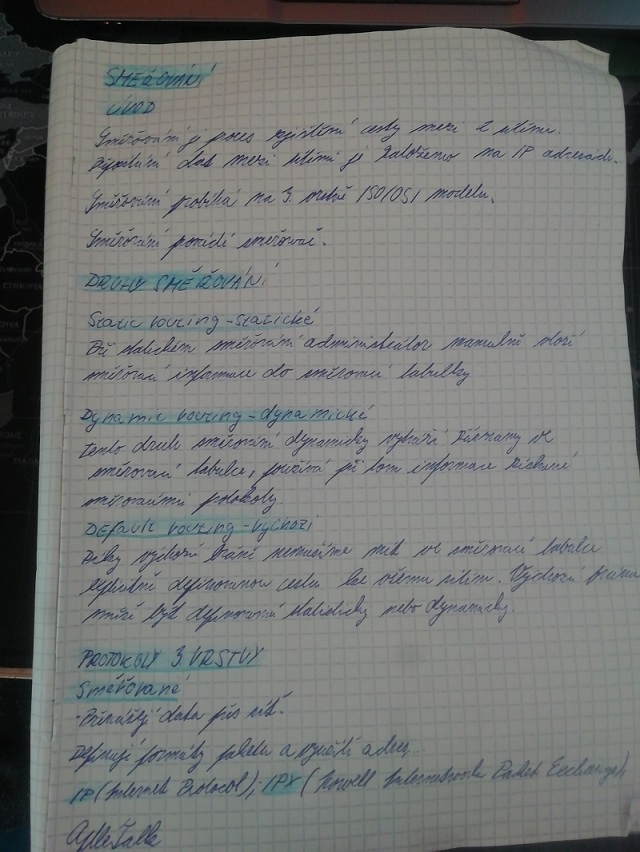 SMĚROVÁNÍ
ÚVOD
Směrování je proces zjištění cesty mezi 2 sítěmi.
dat mezi sítěmi je založeno na IP adresách.
Směrování probíhá na 3. vrstvě ISO/OSI modelu.
Směrování provádí směrovač.
DRUHY SMĚROVÁNÍ
Static routing - statické
Při statickém směrování administrátor manuálně vloží
směrovací informace do směrovací tabulky
Dynamic routing - dynamické
tento druh směrování dynamicky vytváří záznamy ve
směrovací tabulce, používá při tom informace získané
směrovacími protokoly.
Default routing - výchozí
Díky výchozí bráně nemusíme mít ve směrovací tabulce
explicitně definovanou cestu ke všem sítím. Výchozí brána
může být definovaná statisticky nebo dynamicky.
PROTOKOLY 3 VRSTVY
Směřované
- Přenášejí data přes síť.
Definují formáty paketu a využití adres
IP (Internet Protocol); IPX (Novell Internetwork Packet Exchange),
AppleTalk